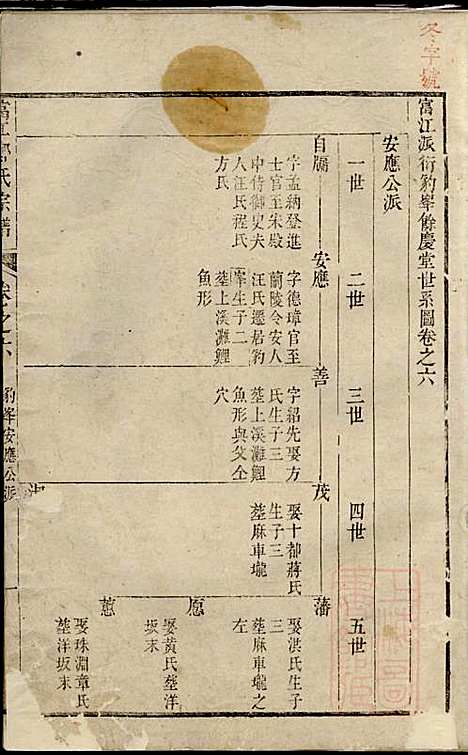 冬字號
富江派衍豹峯餘慶堂世系圖卷之六
安應公派
一世
二世
三世
四世
五世
自牖
字孟納登進
士官至宋殿
中侍御史夫
人汪氏程氏
方氏
安應
字德璋官至
蘭陵令安人
汪氏遷居豹
峯生子二
塟上溪灘鯉
魚形
善
字紹先娶方
氏生子三
塟上溪灘鯉
魚形與父仝
穴
茂
娶十都蔣氏
生子三
塟麻車壠
藩
娶洪氏生子
三
塟麻車壠之
左
愿
娶黄氏塟洋
坂末
蕙
娶珠淵章氏
塟洋坂末
氏宗譜
卷之六
豹峯安應公派